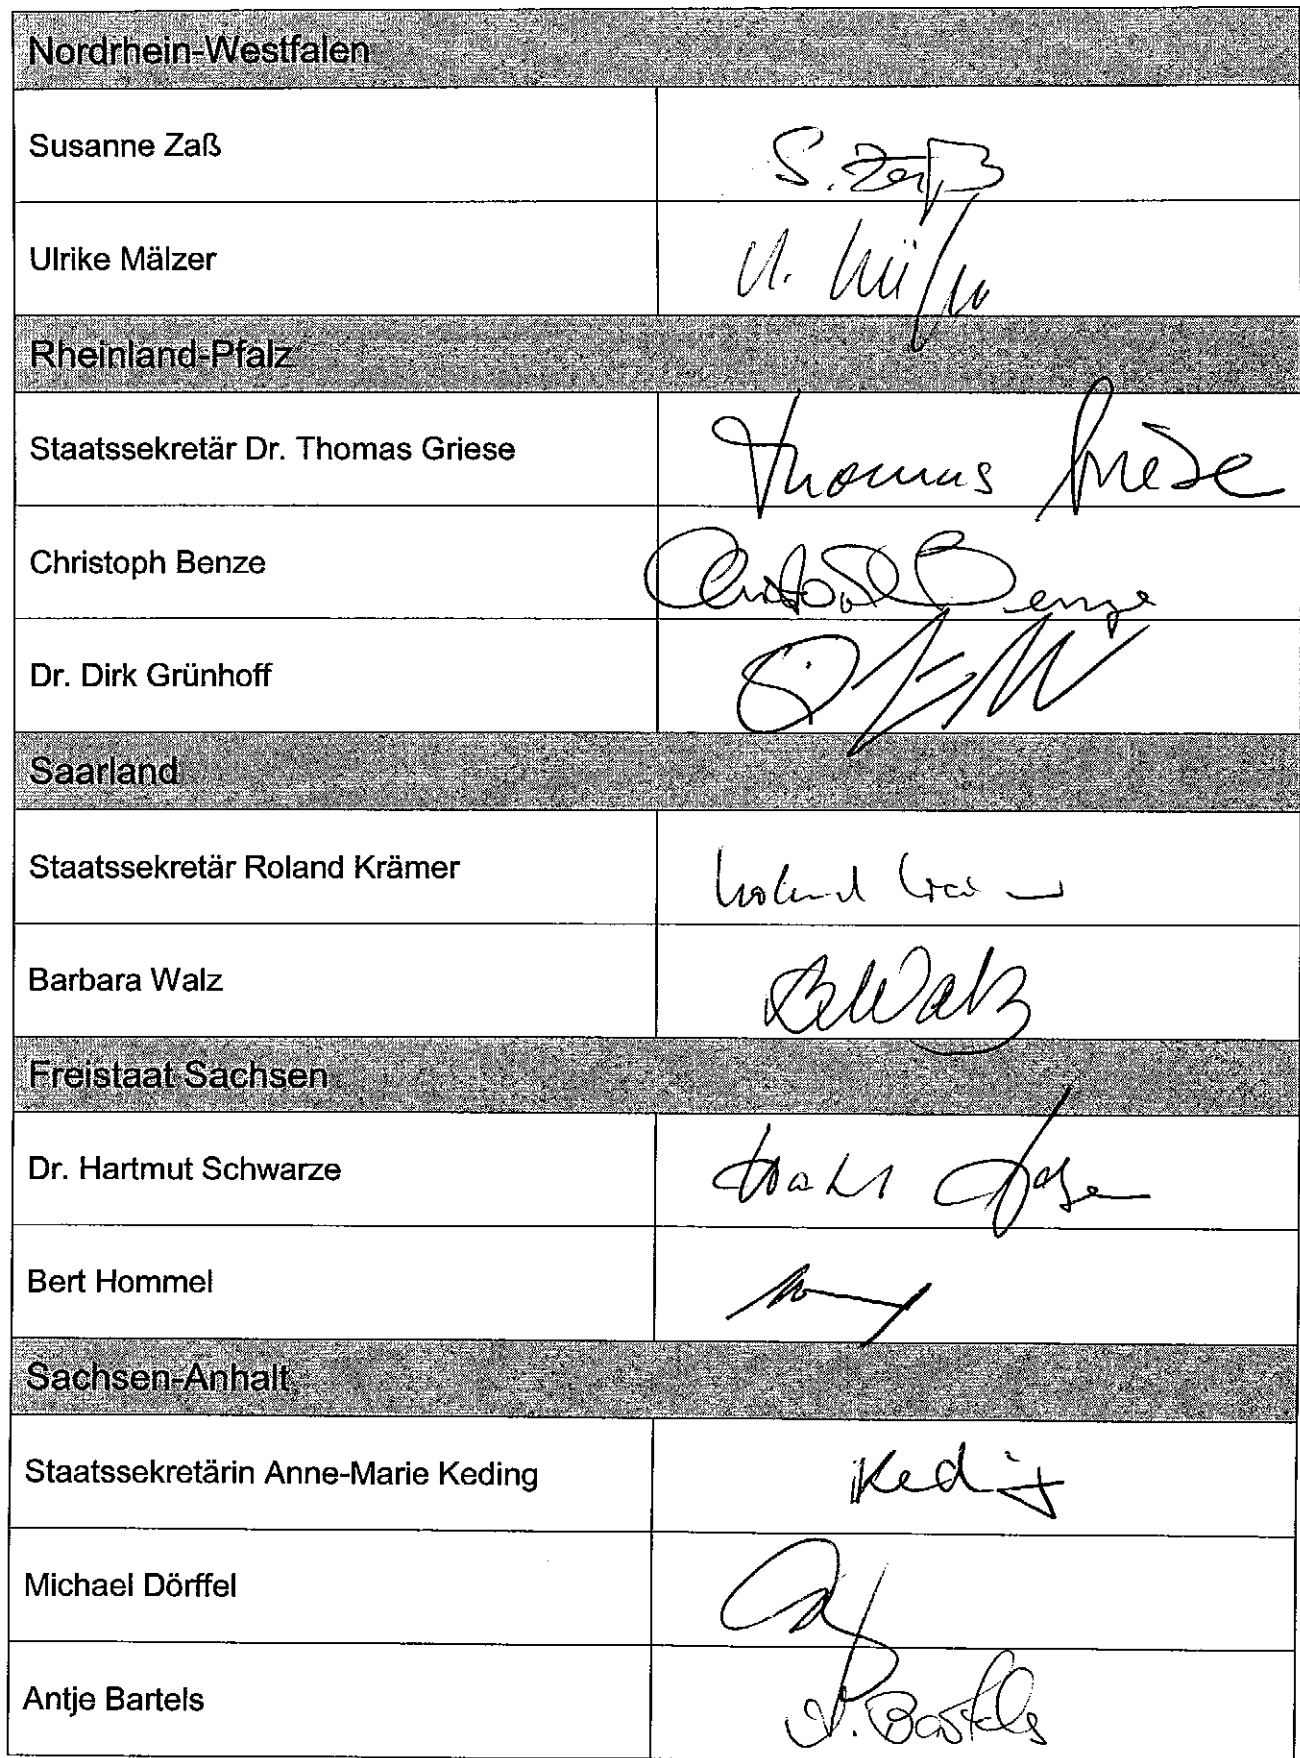 Nordrhein-Westfalen
Susanne Zaß S. Zaß
Ulrike Mälzer U.
Rheinland-Pfalz
Staatssekretär Dr. Thomas Griese Thomas Griese
Christoph Benze Christoph Benze
Dr. Dirk Grünhoff
Saarland
Staatssekretär Roland Krämer Roland
Barbara Walz B. Walz
Freistaat Sachsen
Dr. Hartmut Schwarze
Bert Hommel
Sachsen-Anhalt
Staatssekretärin Anne-Marie Keding Keding
Michael Dörffel
Antje Bartels A. Bartels